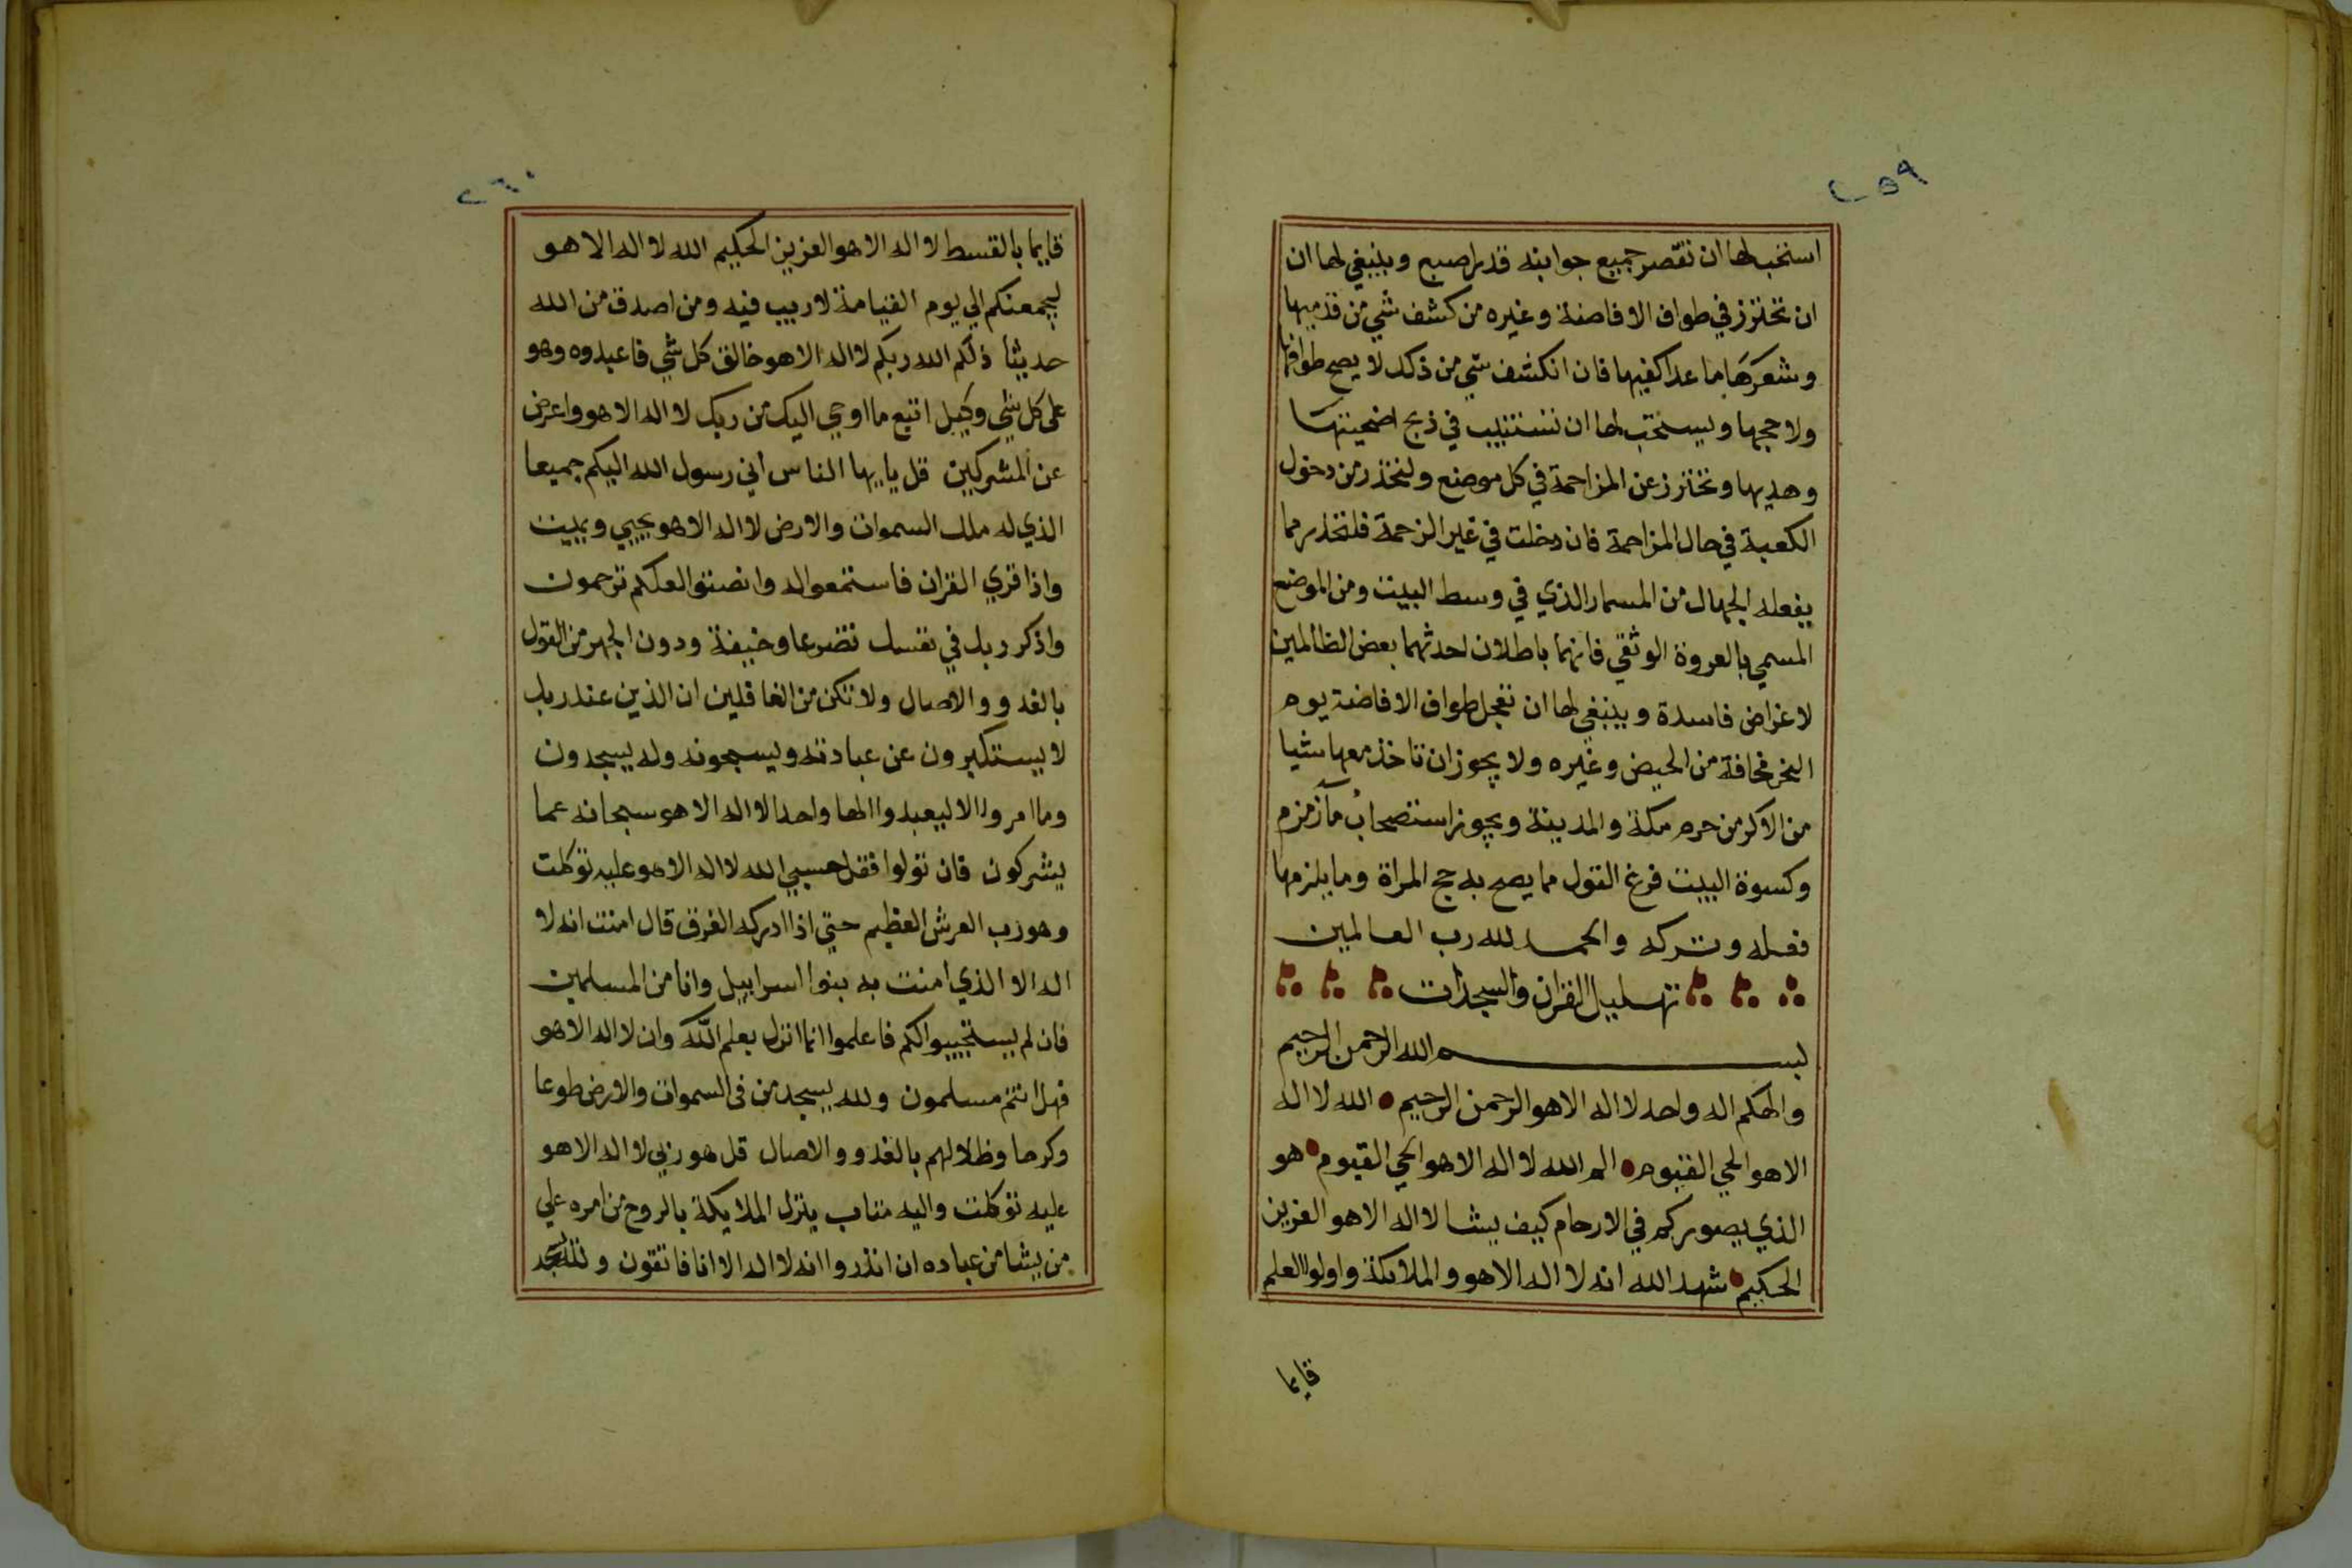 ٢٥٩
استحب لها ان تقصر جميع جوانبه قدر اصبع وينبغي لها ان
ان تحترز في طواف الافاضة وغيره من كشف شي من قدميها
وشعرها ما عدا كفيها فان انكشف شي من ذكك لا يصح طوافها
ولا حجها ويستحب لها ان تستنيب في ذبح اضحيتها
وهديها وتحترز عن المزاحمة في كل موضع ولتحذر من دخول
الكعبة في حال المزاحمة فان دخلت في غير الزحمة فلتحذر مما
يفعله الجهال من المسمار الذي في وسط البيت ومن الموضع
المسمي بالعروة الوثقي فانهما باطلان احدثهما بعض الظالمين
لاغراض فاسدة وينبغي لها ان تعجل طواف الافاضة يوم
النحر مخافة من الحيض وغيره ولا يجوز ان تاخذ معها شيا
من الاكر من حرم مكة والمدينة ويجوز استصحاب مآ زمزم
وكسوة البيت فرغ القول مما يصح به حج المراة وما يلزمها
فعله وتركه والحمد لله رب العالمين
تهليل القران والسجدات
بسم الله الرحمن الرحيم
والهكم اله واحد لا اله الا هو الرحمن الرحيم الله لا اله
الا هو الحي القيوم الم الله لا اله الا هو الحي القيوم هو
الذي يصوركم في الارحام كيف يشا لا اله الا هو العزيز
الحكيم شهد الله انه لا اله الا هو والملائكة واولوا العلم
قايما
٢٦٠
قايما بالقسط لا اله الا هو العزيز الحكيم الله لا اله الا هو
ليجمعنكم الي يوم القيامة لا ريب فيه ومن اصدق من الله
حديثا ذلكم الله ربكم لا اله الا هو خالق كل شي فاعبدوه وهو
على كل شي وكيل اتبع ما اوحي اليك من ربك لا اله الا هو واعرض
عن المشركين قل يايها الناس اني رسول الله اليكم جميعا
الذي له ملك السموات والارض لا اله الا هو يحيي ويميت
واذا قري القران فاستمعوا له وانصتوا لعلكم ترحمون
واذكر ربك في نفسك تضرعا وخيفة ودون الجهر من القول
بالغدو والاصال ولا تكن من الغافلين ان الذين عند ربك
لا يستكبرون عن عبادته ويسبحونه وله يسجدون
وما امروا الا ليعبدوا الها واحدا لا اله الا هو سبحانه عما
يشركون فان تولوا فقل حسبي الله لا اله الا هو عليه توكلت
وهو رب العرش العظيم حتي اذا ادركه الغرق قال امنت انه لا
اله الا الذي امنت به بنوا اسراييل وانا من المسلمين
فان لم يستجيبوا لكم فاعلموا انما انزل بعلم الله وان لا اله الا هو
فهل انتم مسلمون ولله يسجد من في السموات والارض طوعا
وكرها وظلالهم بالغدو والاصال قل هو ربي لا اله الا هو
عليه توكلت واليه متاب ينزل الملايكة بالروح من امره علي
من يشا من عباده ان انذروا انه لا اله الا انا فاتقون ولله يسجد